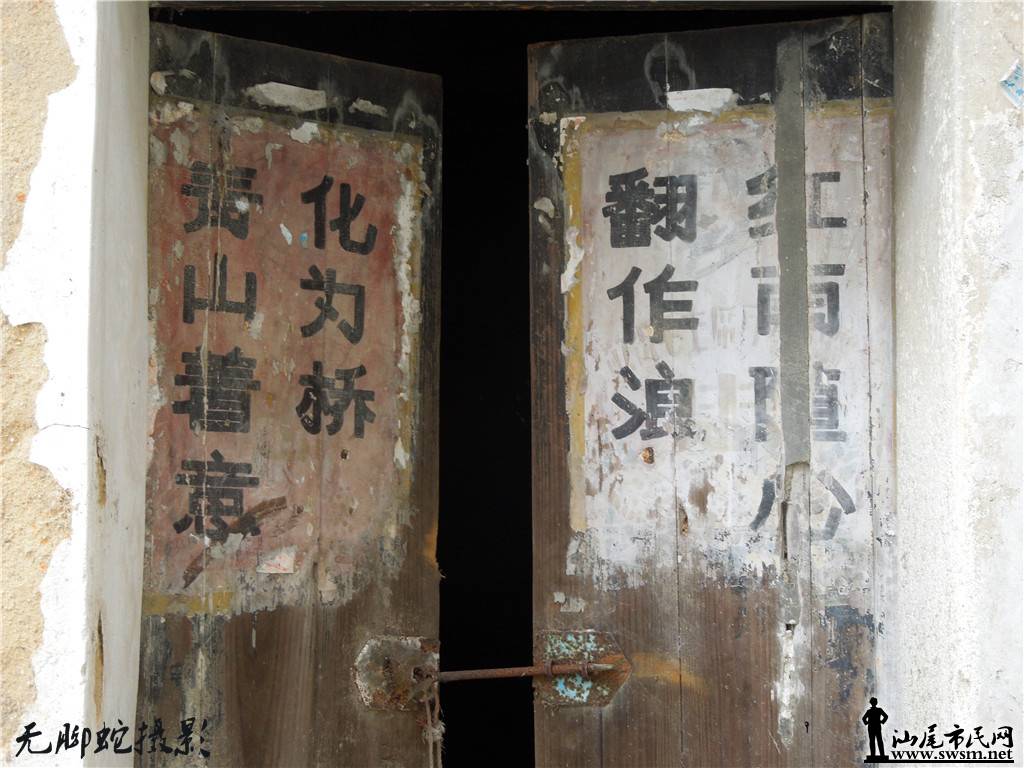 红雨隨心
翻作浪
青山着意
化为桥
无脚蛇摄影
汕尾市民网
www.swsm.net